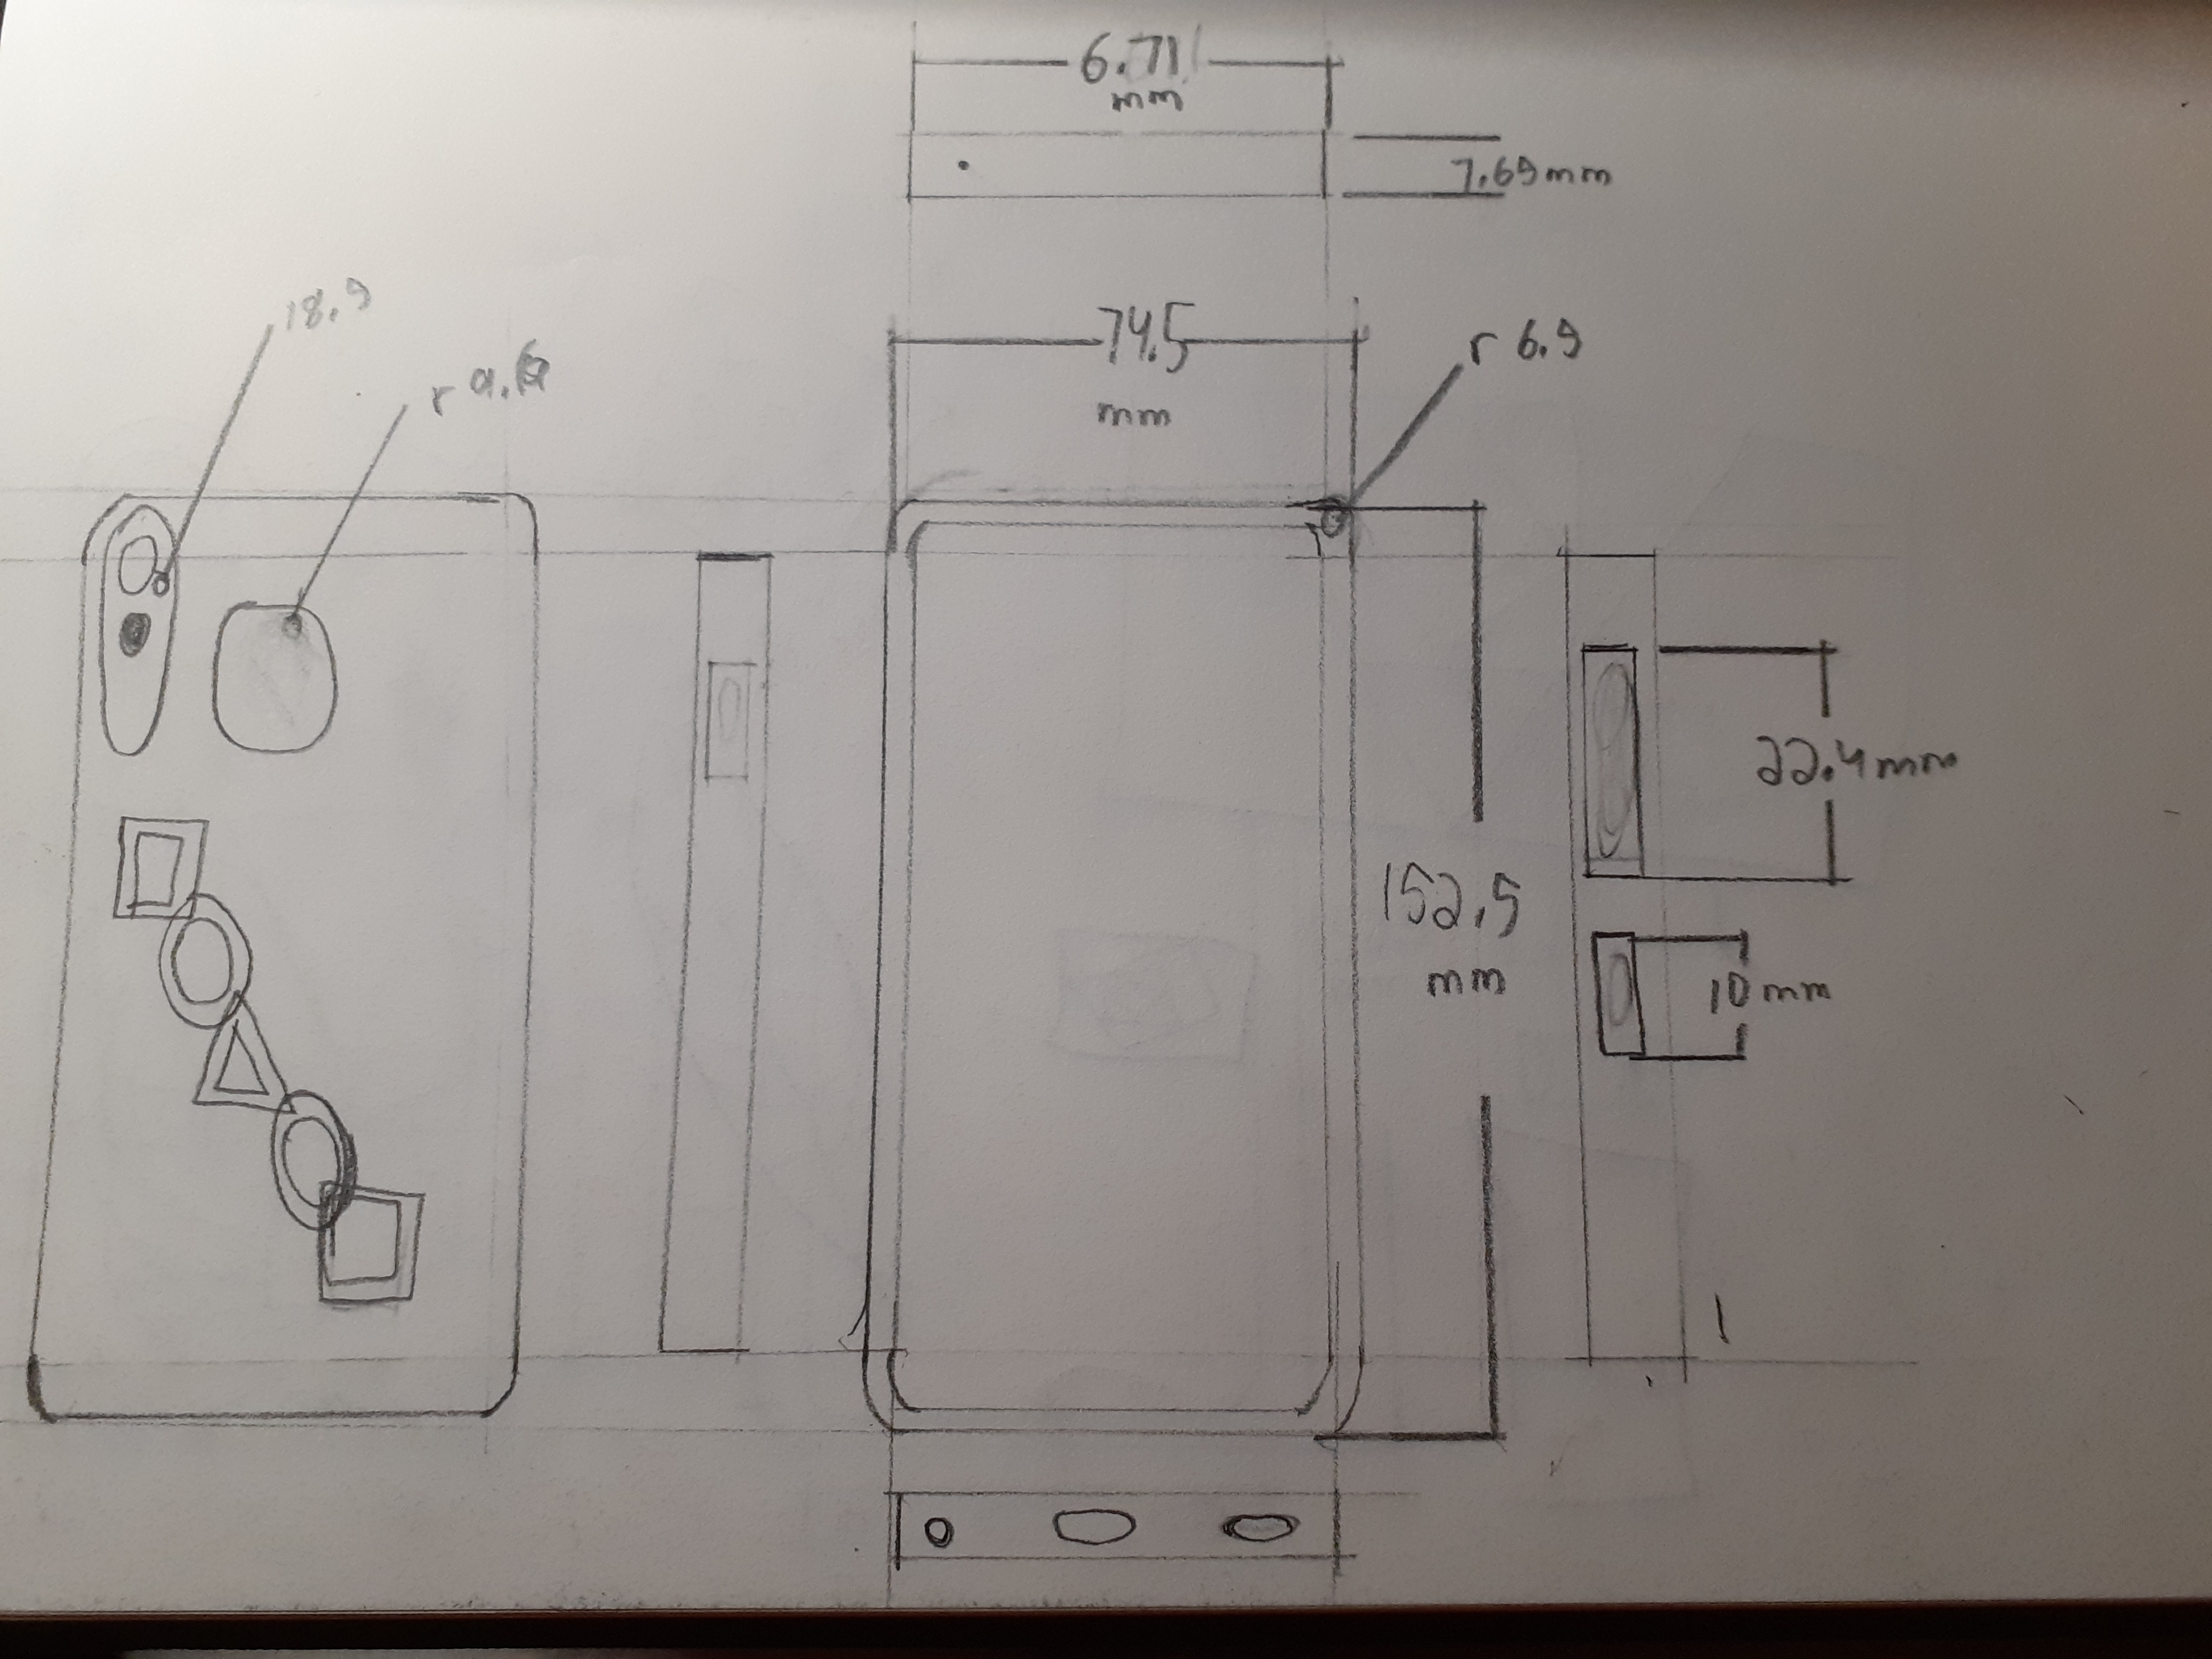 6.71
mm
7.69mm
18.9
74.5
mm
r 6.9
22.4mm
152.5
mm
10mm